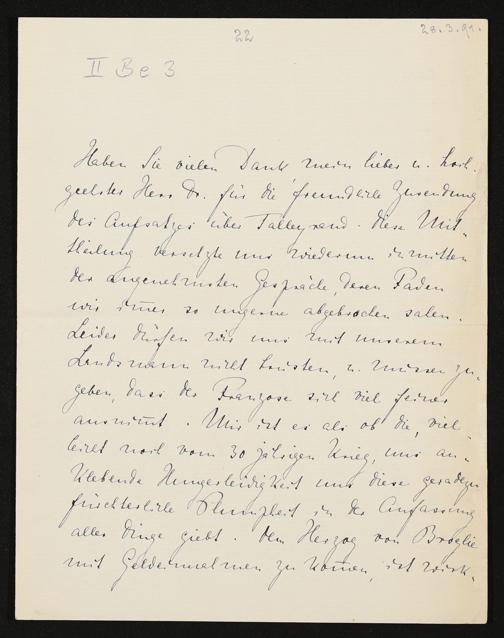 22
28.3.91.
II Be 3
Haben Sie vielen Dank mein lieber u. hoch-
geehrter Herr Dr. für die freundliche Zusendung
des Aufsatzes über Talleyrand. Diese Mit-
theilung versetzte uns wiederum inmitten
der angenehmsten Gespräche deren Faden
wir immer so ungerne abgebrochen sahen.
Leider dürfen wir uns mit unserem
Landsmann nicht brüsten, u. müssen zu-
geben, dass der Franzose sich viel feiner
ausnimt. Mir ist es als ob die, viel-
leicht noch vom 30 jährigen Krieg, uns an-
klebende Hungerleidigkeit uns diese geradezu
fürchterliche Plumpheit in der Auffassung
aller Dinge giebt. Dem Herzog von Broglie
mit Geldeinnahmen zu kommen, ist wirk-